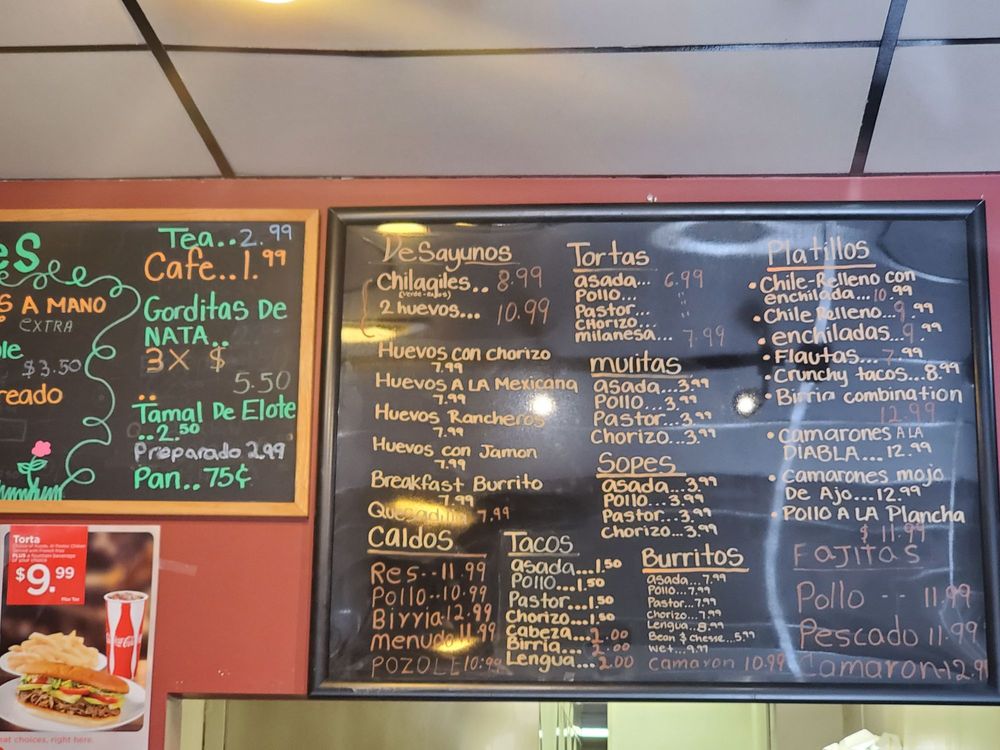 es
S A MANO
EXTRA
le
$3.50
reado
Tea..2.99
Cafe..1.99
Gorditas De
NATA..
3X $
5.50
Tamal De Elote
..2.50
Preparado 2.99
Pan..75¢
Torta
PLUS a fountain beverage
of your choice
$9.99
Plus Tax
Coca-Cola
eat choices, right here.
DeSayunos
Chilaqiles.. 8.99
2 huevos... 10.99
Huevos con chorizo
7.99
Huevos A LA Mexicana
7.99
Huevos Rancheros
7.99
Huevos con Jamon
7.99
Breakfast Burrito
7.99
7.99
Caldos
Res--11.99
Pollo--10.99
Birria-12.99
menudo 11.99
POZOLE 10.99
Tortas
asada... 6.99
Pollo... "
Pastor... "
Chorizo... "
milanesa... 7.99
mulitas
asada...3.99
Pollo...3.99
Pastor...3.99
Chorizo...3.99
Sopes
asada...3.99
Pollo...3.99
Pastor...3.99
Chorizo...3.99
Tacos
asada...1.50
Pollo...1.50
Pastor...1.50
Chorizo...1.50
Cabeza...2.00
Birria...2.00
Lengua...2.00
Burritos
Asada...7.99
Pollo...7.99
Pastor...7.99
Chorizo...7.99
Lengua...8.99
Bean & Cheese...5.99
wet...9.99
Camaron 10.99
Platillos
• Chile-Relleno con
enchilada...10.99
• Chile Relleno...9.99
• enchiladas...9.99
• Flautas...7.99
• Crunchy tacos...8.99
• Birria combination
12.99
• Camarones A LA
DIABLA...12.99
• Camarones mojo
De Ajo...12.99
• Pollo A LA Plancha
$11.99
Fajitas
Pollo -- 11.99
Pescado 11.99
Camaron-12.9